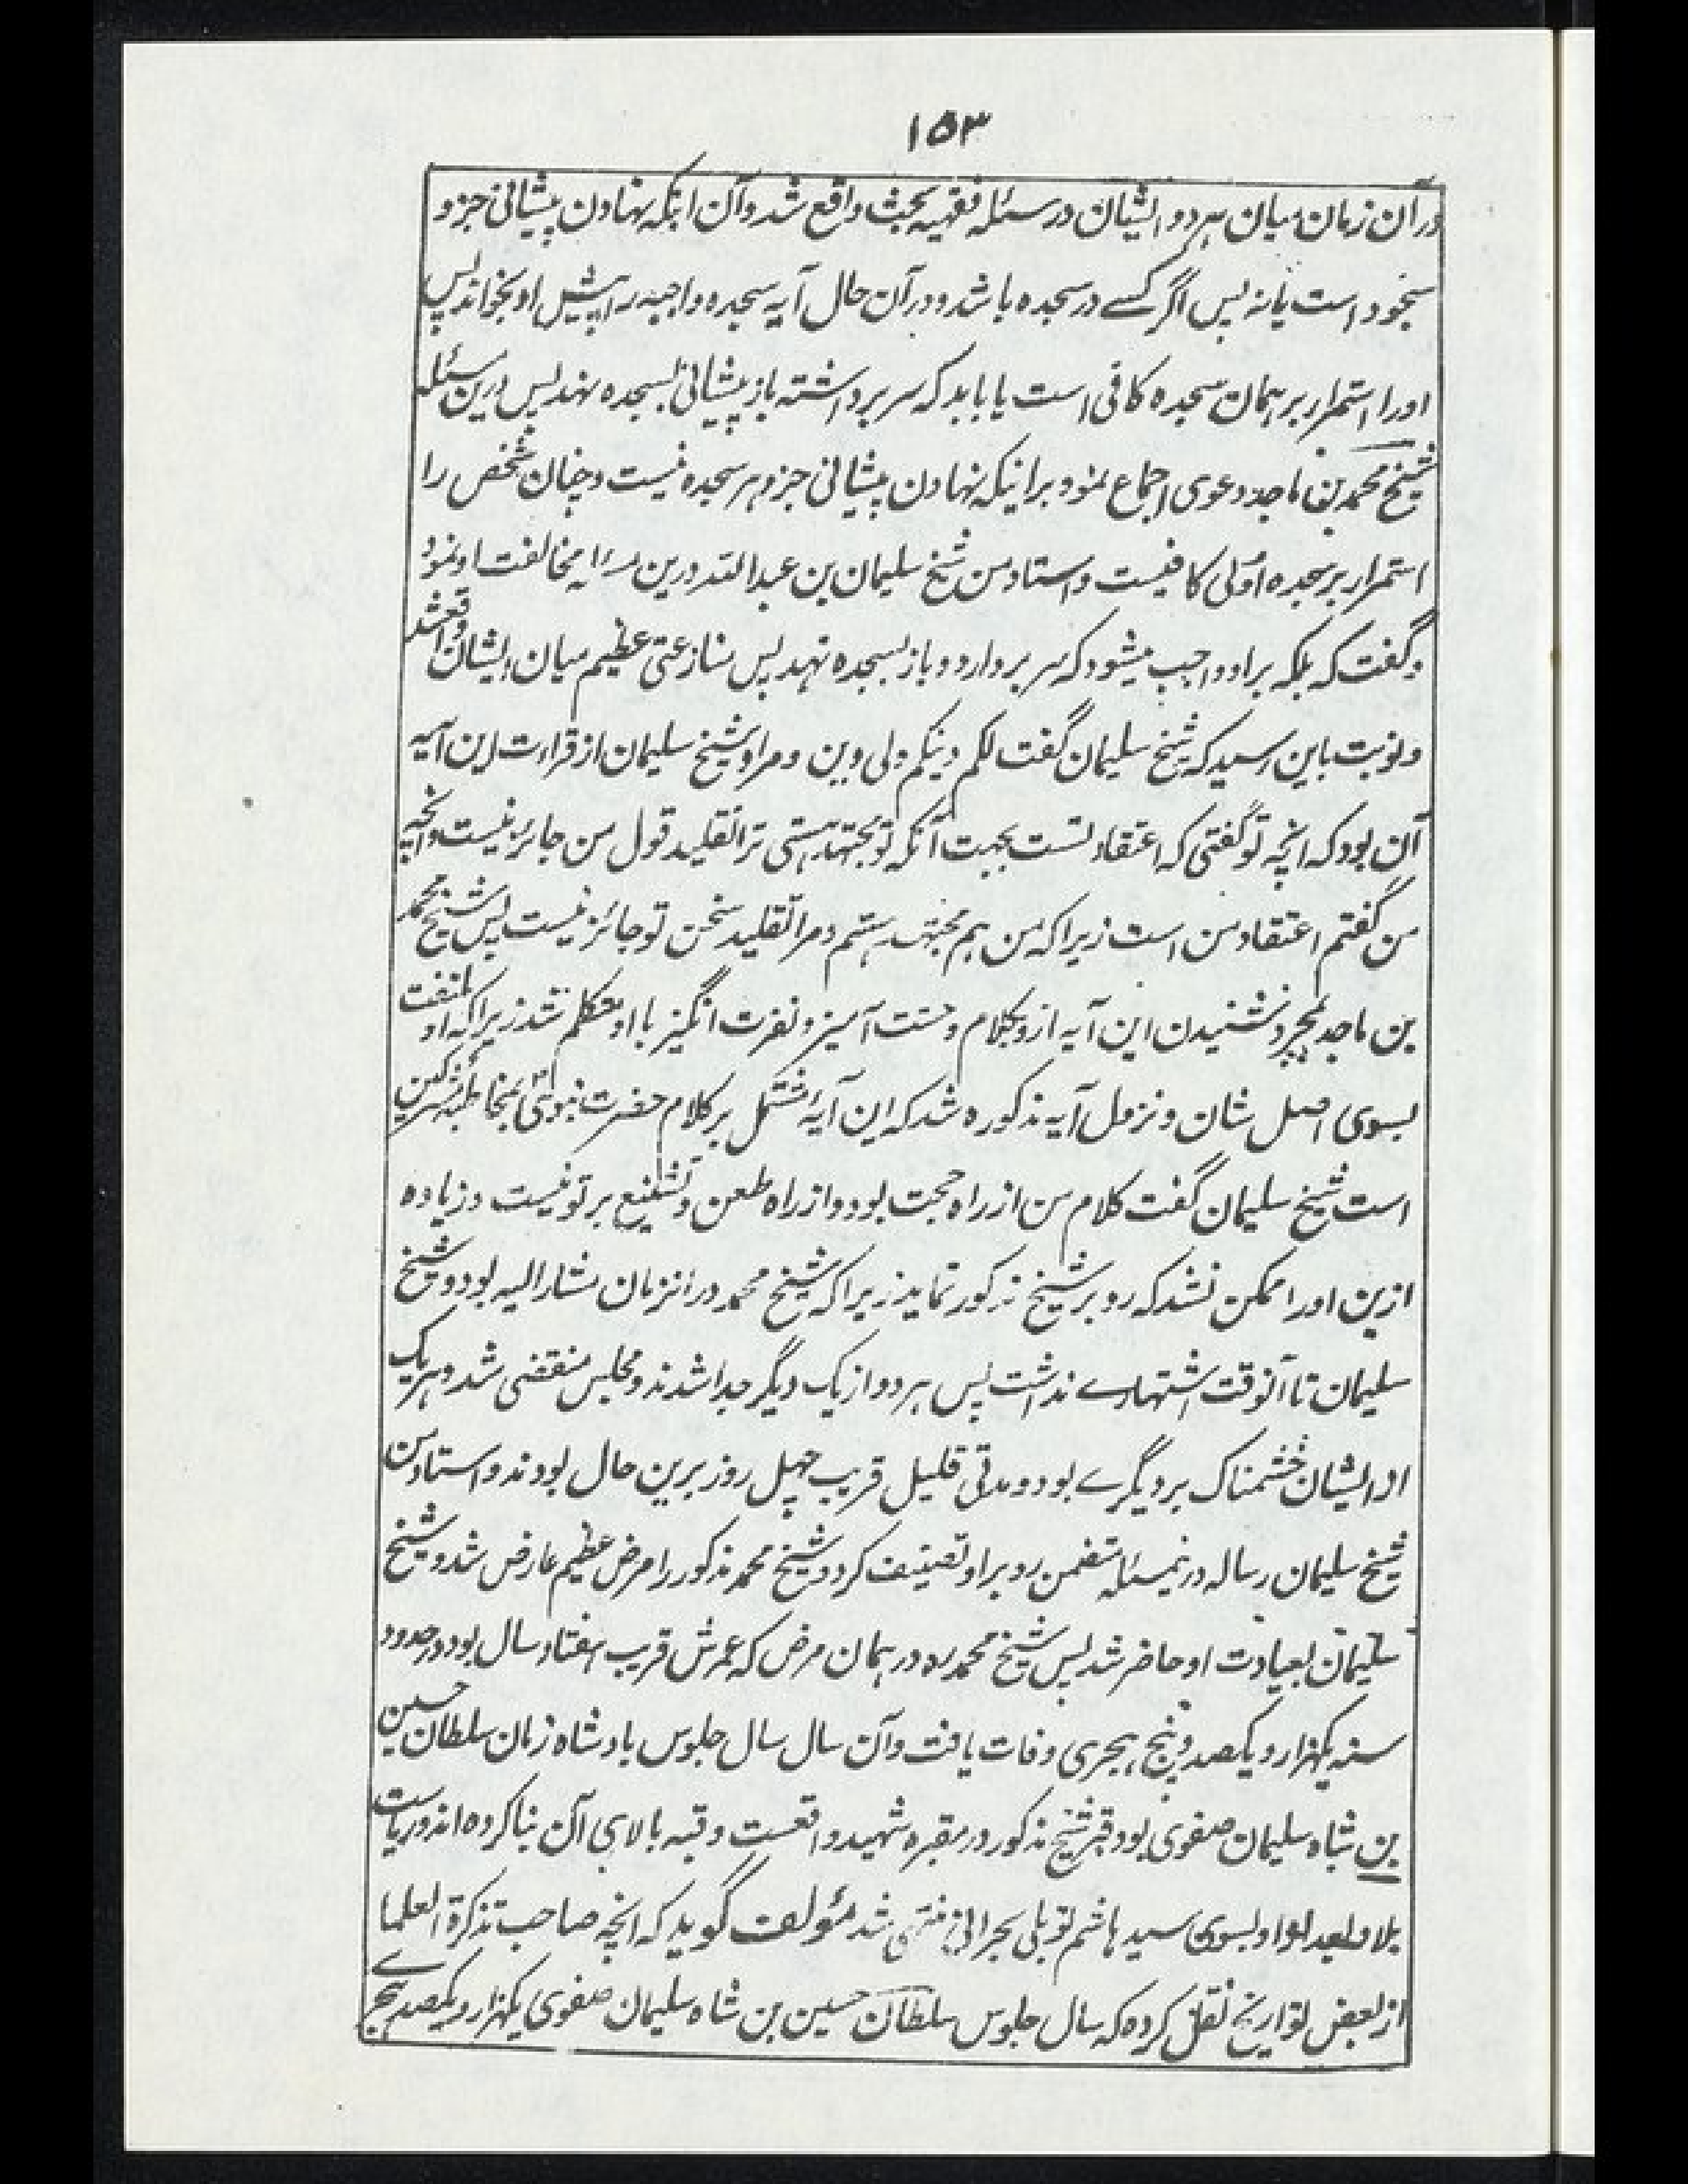 ۱۵۳
درآن زمان میان هر دو ایشان در مسئله فقهیه بحث واقع شد و آن اینکه نهادن پیشانی جزو
سجود است یا نه پس اگر کسے در سجده باشد و درآن حال آیه سجده واجبه را پیش او بخوانند پس
او را استمرار بر همان سجده کافی است یا باید که سر برداشته باز پیشانی بسجده نهد پس درین مسئله
شیخ محمد بن ماجد دعوی اجماع نمود بر اینکه نهادن پیشانی جزو هر سجده نیست و چنان شخص را
استمرار بر سجده اولی کافیست و استاد من شیخ سلیمان بن عبدالله درین مخالفت او نمود
و گفت که بلکه بر او واجب میشود که سر بردارد و باز بسجده نهد پس منازعتی عظیم میان ایشان واقع شد
و نوبت باین رسید که شیخ سلیمان گفت لکم دینکم ولی دین و مراد شیخ سلیمان از قراءت این آیه
آن بود که انچه تو گفتی که اعتقاد تست بجهت آنکه تو مجتهد هستی ترا تقلید قول من جائز نیست و انچه
من گفتم اعتقاد من است زیرا که من هم مجتهد هستم و مرا تقلید سخن تو جائز نیست پس شیخ محمد
بن ماجد بمجرد شنیدن این آیه ازو بکلام وحشت آمیز و نفرت انگیز با او متکلم شد زیرا که او ملتفت
بسوی اصل شان و نزول آیه مذکوره شد که این آیه مشتمل بر کلام حضرت نبوی بمخاطبه مشرکین
است شیخ سلیمان گفت کلام من از راه حجت بود و از راه طعن و تشنیع بر تو نیست و زیاده
ازین او را ممکن نشد که رد بر شیخ مذکور نماید زیرا که شیخ محمد در انزمان مشار الیه بود و شیخ
سلیمان تا آنوقت اشتهارے نداشت پس هر دو از یک دیگر جدا شدند و مجلس منقضی شد و هریک
از ایشان خشمناک بر دیگرے بود و مدتی قلیل قریب چهل روز برین حال بودند و استاد من
شیخ سلیمان رساله درینمسئله متضمن رد بر او تصنیف کرد و شیخ محمد مذکور را مرض عظیم عارض شد و شیخ
سلیمان بعیادت او حاضر شد پس شیخ محمد ره در همان مرض که عمرش قریب هفتاد سال بود در حدود
سنه یکهزار و یکصد و پنج هجری وفات یافت و آن سال سال جلوس بادشاه زمان سلطان حسین
بن شاه سلیمان صفوی بود و قبر شیخ مذکور در مقبره شهید واقعست و قبه بالای آن بنا کرده اند و ریاست
بلاد بعد او بسوی سید هاشم توبلی بحرانی منتهی شد مؤلف گوید که انچه صاحب تذکرة العلما
از بعض تواریخ نقل کرده که سال جلوس سلطان حسین بن شاه سلیمان صفوی یکهزار و یکصد و پنج